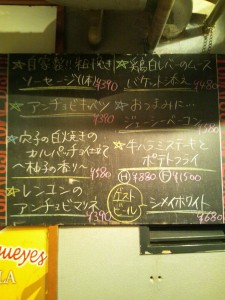 自家製粗挽き
ソーセージ(1本)¥390
アンチョビキャベツ
¥390
穴子の白焼きの
カルパッチョ仕立て
〜柚子の香り〜 ¥580
レンコンの
アンチョビマリネ
¥390
鶏白レバーのムース
バケット添え ¥480
おつまみに…
ジューシーベーコン
牛ハラミステーキと
ポテトフライ
(H)¥880 (F)¥1500
ゲスト
ビール
シメイホワイト
¥680
ueyes
LA